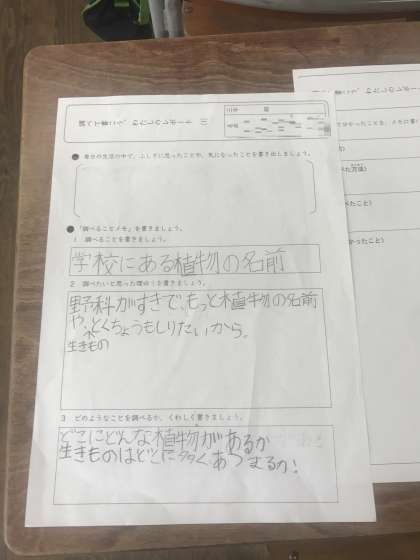 調べて書こう、わたしのレポート (1)
三年 組
名前
● 毎日の生活の中で、ふしぎに思ったことや、気になったことを書き出しましょう。
●「調べることメモ」を書きましょう。
1 調べることを書きましょう。
学校にある植物の名前
2 調べたいと思った理由を書きましょう。
野科がすきで、もっと植物の名前
や、とくちょうもしりたいから。
生きもの
3 どのようなことを調べるか、くわしく書きましょう。
どこにどんな植物があるか
生きものはどこに多くあつまるか!
調べて書こう、わたしのレポート
べた方法)
べたこと)
かったこと)